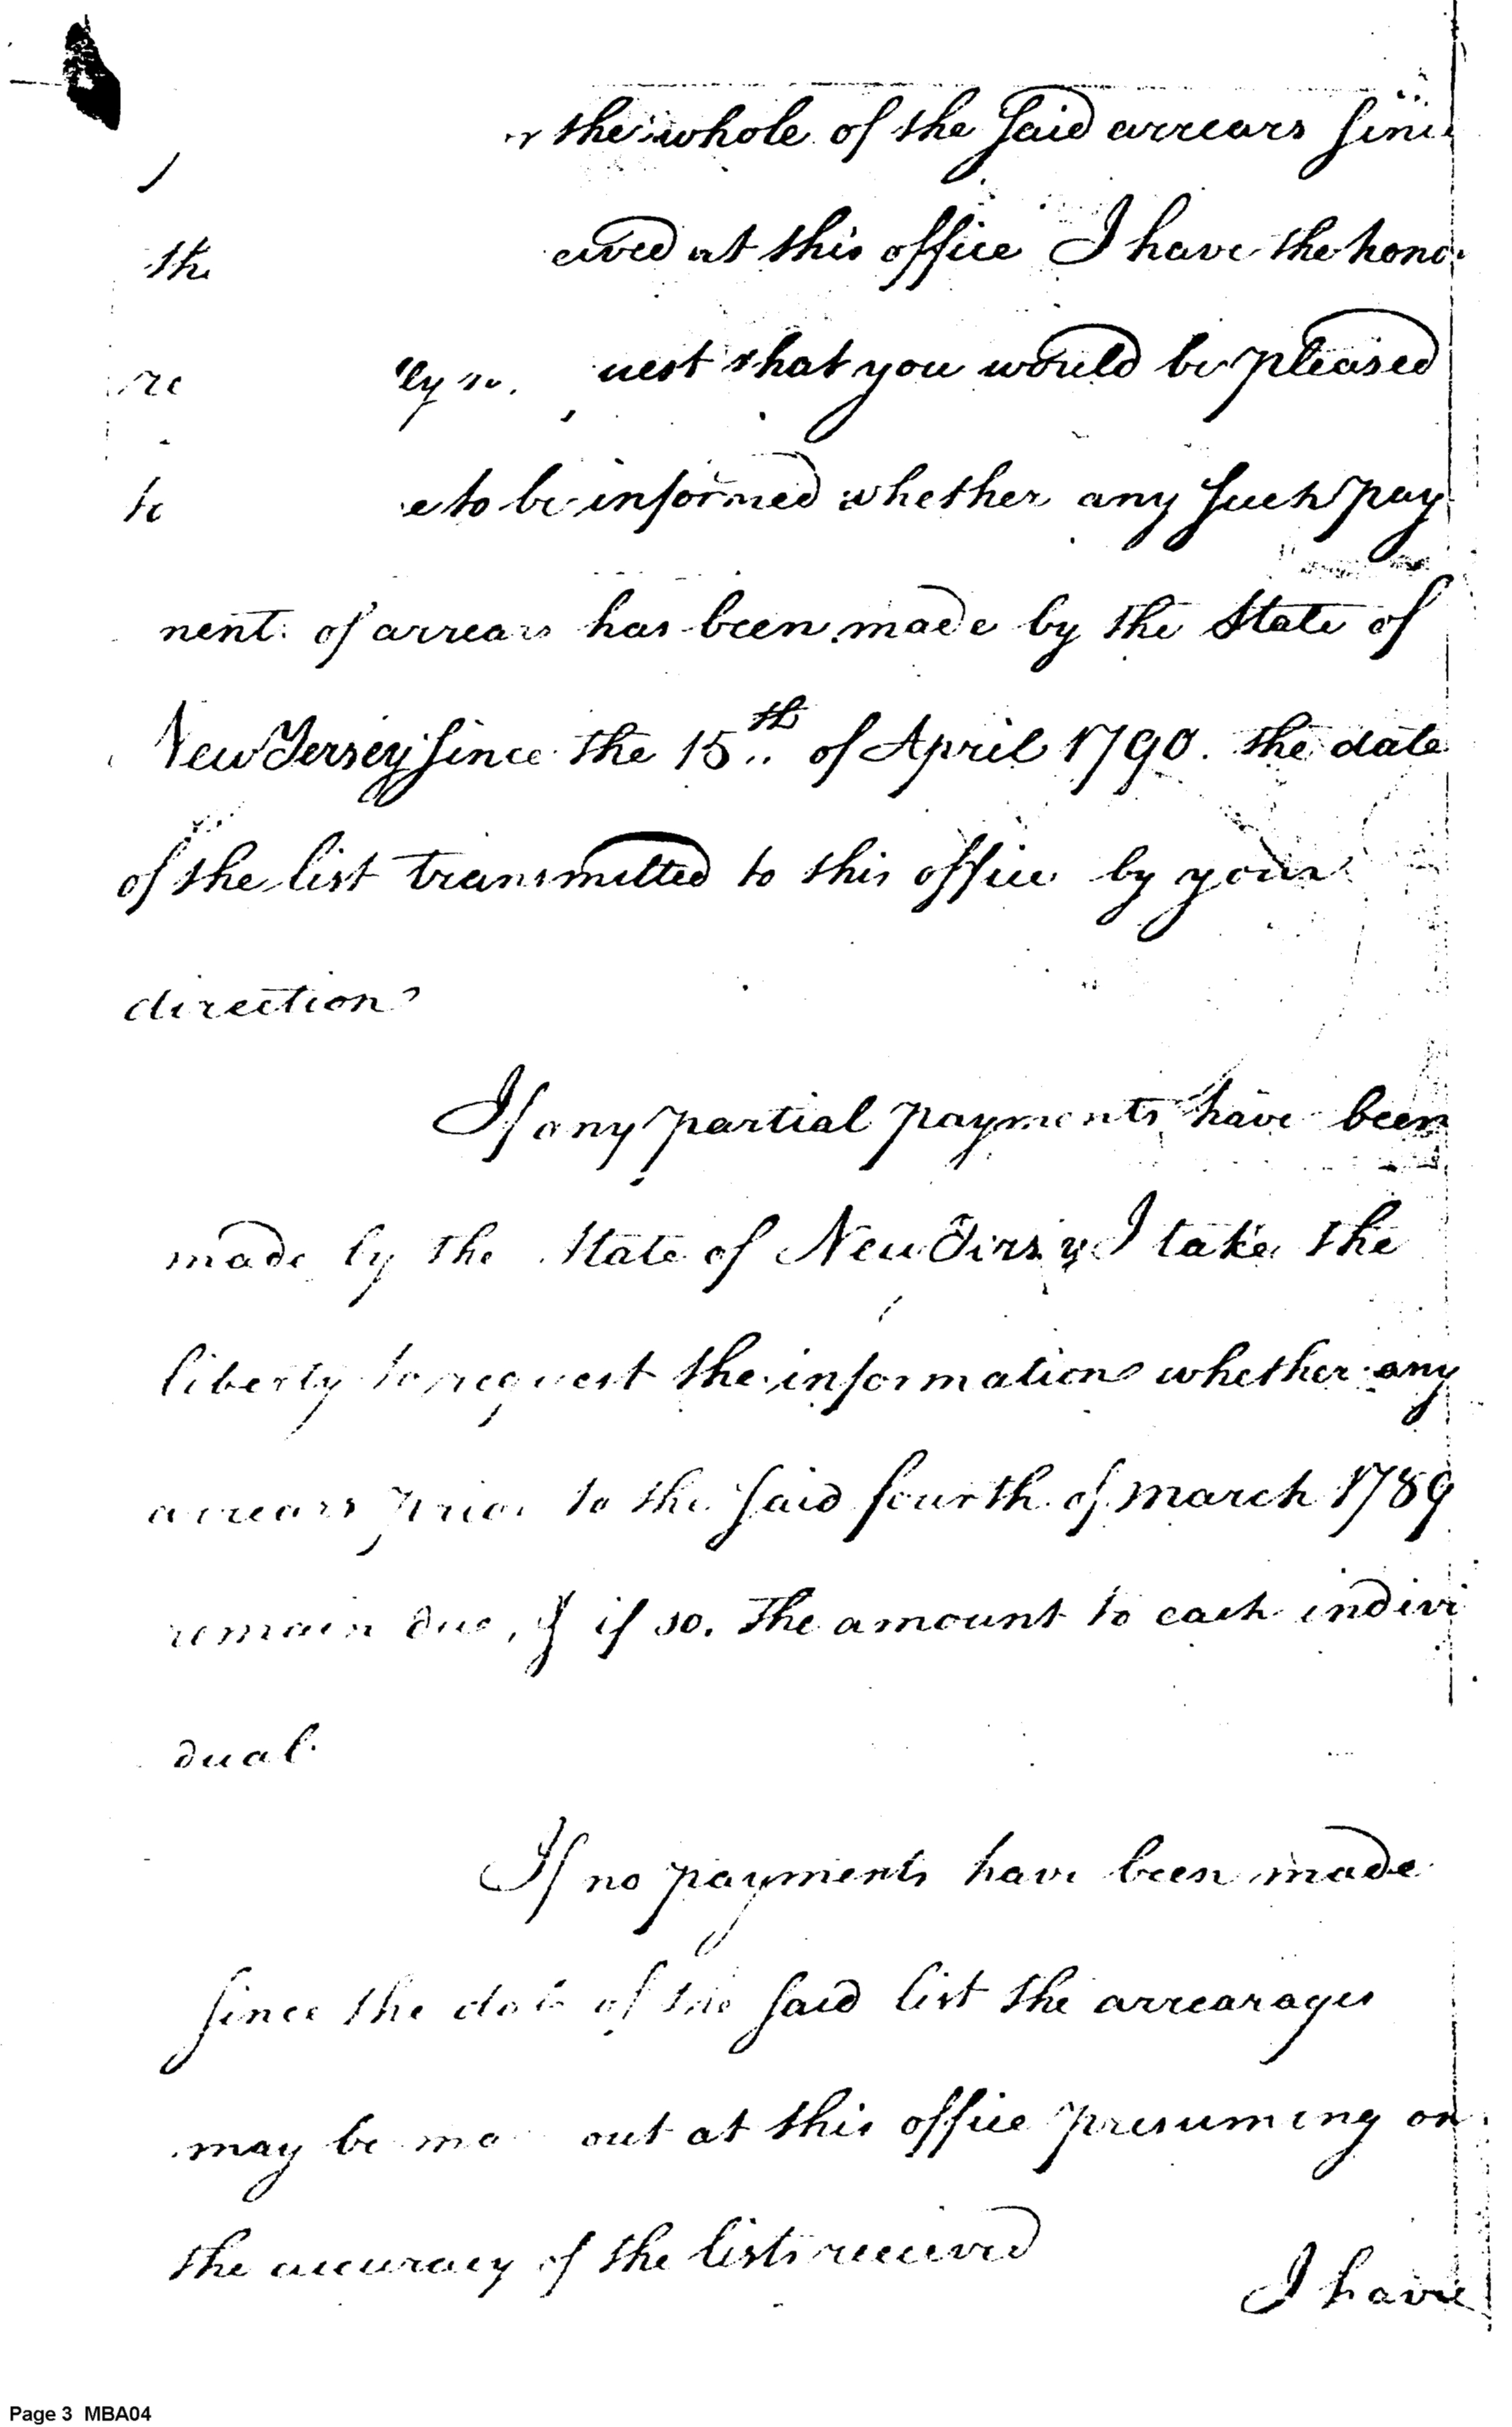 the whole of the said arrears since
the eived at this office I have the hono
re ly re nest that you would be pleased
to e to be informed whether any such pay
ment of arrears has been made by the State of
New Jersey since the 15th of April 1790. the date
of the list transmitted to this office by your
direction
If any partial payments have been
made by the State of New Jersey I take the
liberty to request the information whether any
arrears prior to the said fourth of march 1789
remain due, & if so. The amount to each indivi
dual.
If no payments have been made
since the date of the said list the arrearages
may be ma out at this office presuming on
the accuracy of the lists received
I have
Page 3 MBA04